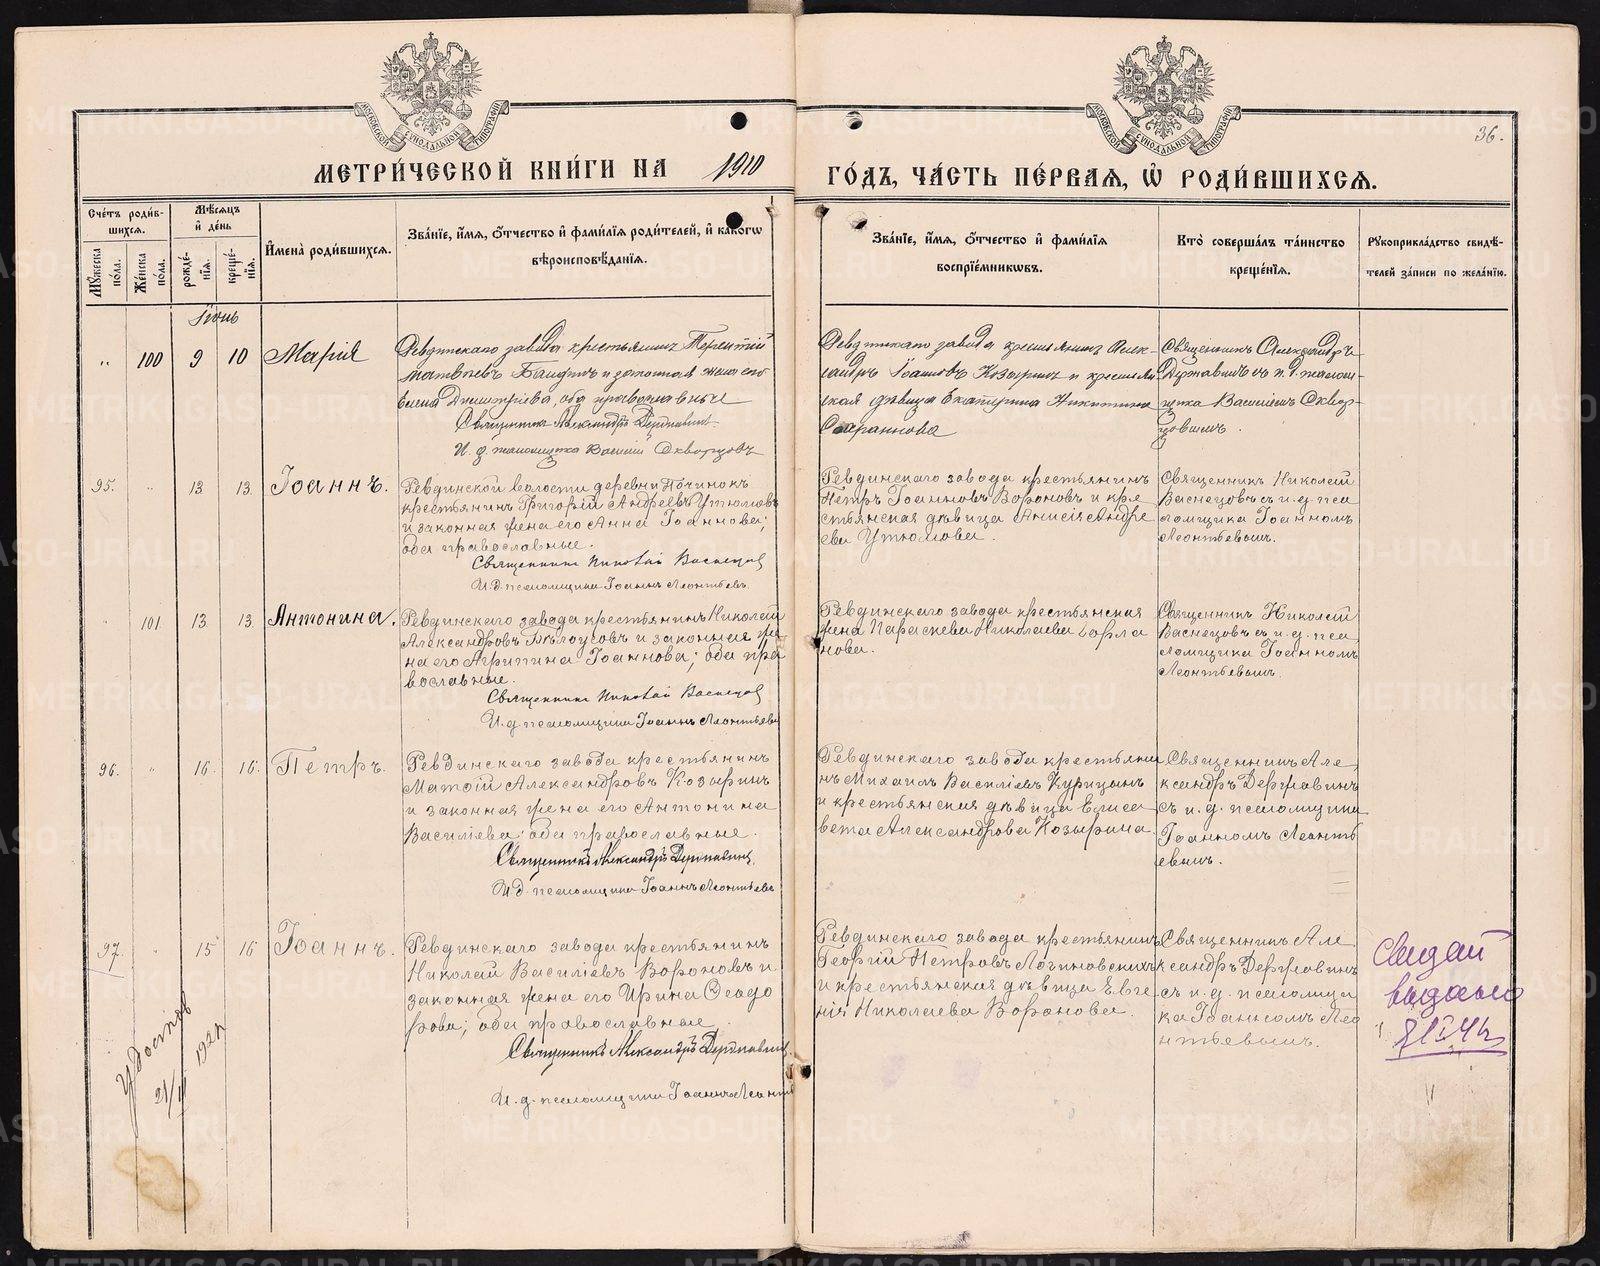 МОСКОВСКОЙ СѴНОДАЛЬНОЙ ТИПОГРАФІИ
МОСКОВСКОЙ СѴНОДАЛЬНОЙ ТИПОГРАФІИ
36.
МЕТРИ́ЧЕСКОЙ КНИ́ГИ НА 1910
ГО́ДЪ, ЧА́СТЬ ПЕ́РВАѦ, Ѡ҆ РОДИ́ВШИХСѦ.
Сче́тъ роди́вшихсѧ.
Мꙋ́жеска по́ла.
Же́нска по́ла.
Мѣ́сѧцъ и҆ де́нь
рожде́нїѧ.
креще́нїѧ.
И҆мена̀ роди́вшихсѧ.
Зва́нїе, и҆́мѧ, ѻ҆́тчество и҆ фами́лїѧ роди́телей, и҆ како́гѡ
вѣроисповѣ́данїѧ.
Зва́нїе, и҆́мѧ, ѻ҆́тчество и҆ фами́лїѧ
воспрїе́мникѡвъ.
Кто̀ соверша́лъ та́инство
креще́нїѧ.
Рꙋкоприкла́дство свидѣ́-
телей за́писи по жела́нїю.
Іюнь
" 100 9 10 Марія
Ревдинскаго завода крестьянинъ Терентій
Матвѣевъ и законная жена его
Елена Димитріева, оба православные
Священникъ Александръ Державинъ
И. д. псаломщика Василій Скворцовъ
Ревдинскаго завода крестьянинъ Алек-
сандръ Іоанновъ Козыринъ и крестьян-
ская дѣвица Екатерина Никитина
Священникъ Александръ
Державинъ съ и. д. псалом-
щика Василіемъ Сквор-
цовымъ.
95. " 13 13. Іоаннъ.
Ревдинской волости деревни Починокъ
крестьянинъ Григорій Андреевъ Утюмовъ
и законная жена его Анна Іоаннова;
оба православные.
Священникъ Николай Васнецовъ
И.д. псаломщика Іоаннъ Леонтьевъ
Ревдинскаго завода крестьянинъ
Петръ Іоанновъ Вороновъ и кре
стьянская дѣвица Анисія Андре
ева Утюмова.
Священникъ Николай
Васнецовъ съ и. д. пса
ломщика Іоанномъ
Леонтьевымъ.
" 101 13 13. Антонина.
Ревдинскаго завода крестьянинъ Николай
Александровъ Бѣлоусовъ и законная же
на его Агрипина Іоаннова; оба пра
вославные.
Священникъ Николай Васнецовъ
И. д. псаломщика Іоаннъ Леонтьевъ
Ревдинскаго завода крестьянская
жена Параскева Николаева Горла
нова.
Священникъ Николай
Васнецовъ съ и. д. пса
ломщика Іоанномъ
Леонтьевымъ.
96. " 16. 16. Петръ.
Ревдинскаго завода крестьянинъ
Матѳій Александровъ Козыринъ
и законная жена его Антонина
Василіева; оба православные.
Священникъ Александръ Державинъ
И.д. псаломщика Іоаннъ Леонтьевъ
Ревдинскаго завода крестьяни
нъ Михаилъ Василіевъ Курицынъ
и крестьянская дѣвица Елиса
вета Александрова Козырина.
Священникъ Але
ксандръ Державинъ
съ и. д. псаломщика
Іоанномъ Леонть
евымъ.
97. " 15 16 Іоаннъ.
Ревдинскаго завода крестьянинъ
Николай Василіевъ Вороновъ и
законная жена его Ирина Ѳеодо
рова; оба православные
Священникъ Александръ Державинъ
И. д. псаломщика Іоаннъ Леонть
Ревдинскаго завода крестьянинъ
Георгій Петровъ Логиновскихъ
и крестьянская дѣвица Евге
нія Николаева Воронова.
Священникъ Але
ксандръ Державинъ
съ и. д. псаломщи
ка Іоанномъ Лео
нтьевымъ.
выдано